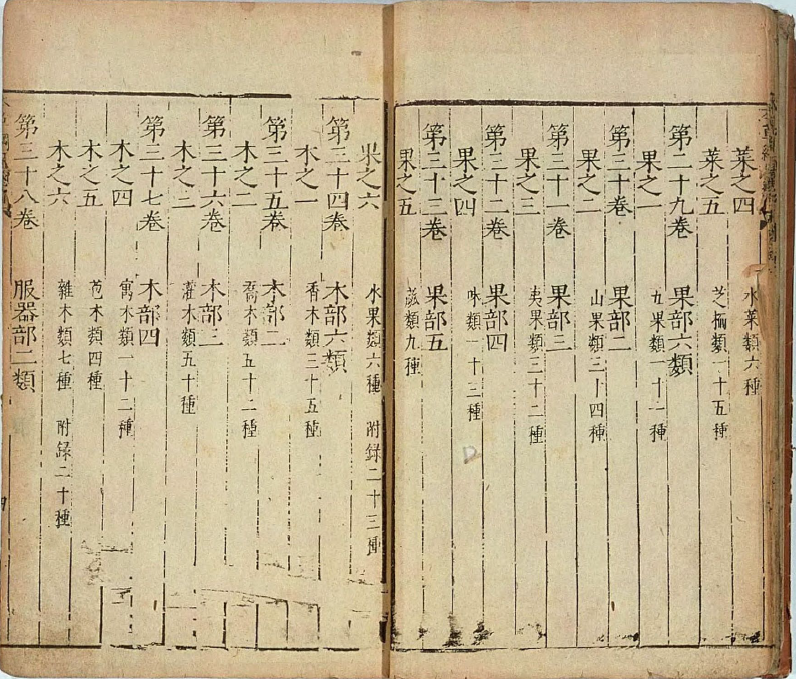 菜之四 水菜類六種
菜之五 芝栭類一十五種
第二十九卷 果部六類
果之一 五果類一十一種
第三十卷 果部二
果之二 山果類三十四種
第三十一卷 果部三
果之三 夷果類三十二種
第三十二卷 果部四
果之四 味類一十三種
第三十三卷 果部五
果之五 蓏類九種
果之六 水果類六種 附録二十三種
第三十四卷 木部六類
木之一 香木類三十五種
第三十五卷 木部二
木之二 喬木類五十二種
第三十六卷 木部三
木之三 灌木類五十種
第三十七卷 木部四
木之四 寓木類一十二種
木之五 苞木類四種
木之六 雜木類七種 附録二十種
第三十八卷 服器部二類